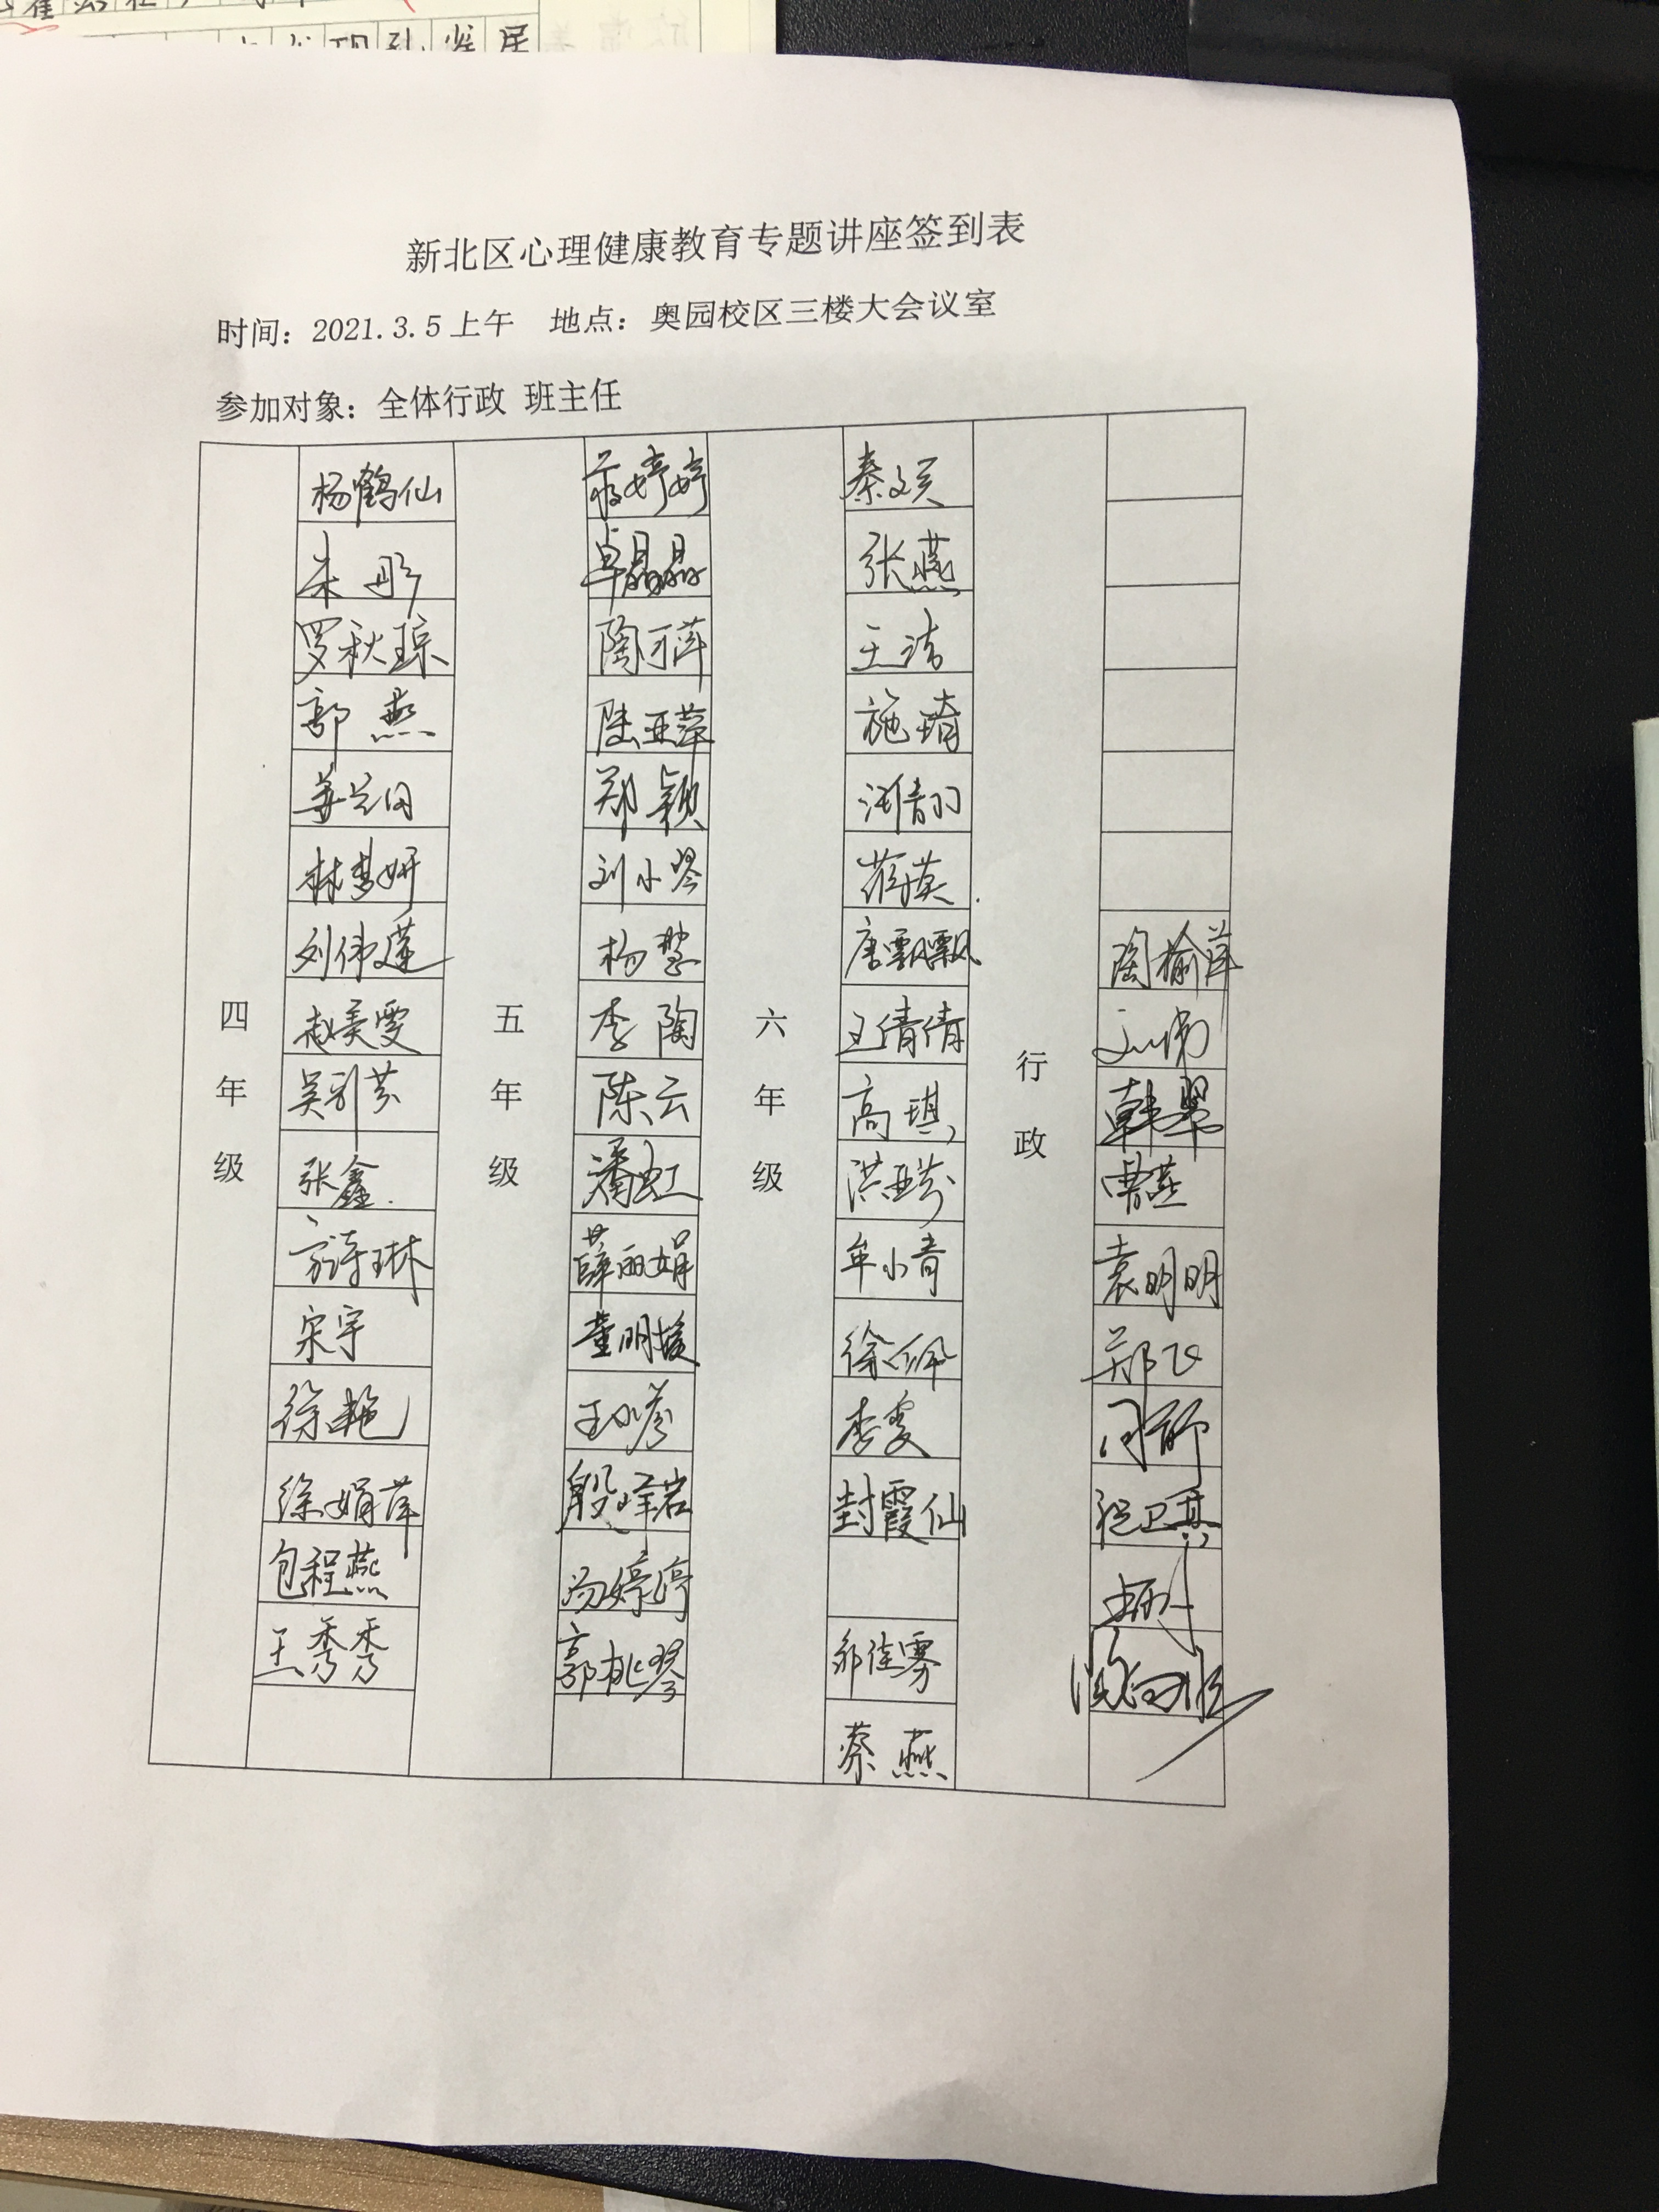 新北区心理健康教育专题讲座签到表
时间：2021.3.5上午 地点：奥园校区三楼大会议室
参加对象：全体行政 班主任
四年级
杨鹤仙
朱彤
罗秋琼
郭燕
姜兰田
林梦妍
刘伟莲
赵美雯
吴引芬
张鑫
宋宇
徐艳
徐娟萍
包程燕
王秀秀
五年级
蒋婷婷
卓晶晶
陶可萍
陆亚萍
郑颖
刘小琴
杨慧
李陶
陈云
潘虹
薛丽娟
董明媛
殷峰岩
汤婷婷
郭桃琴
六年级
秦文英
张燕
王洁
施琦
唐飘飘
王倩倩
高琪
洪亚芬
牟小青
徐佩
李雯
封霞仙
邹佳雾
蔡燕
行政
陶榆萍
韩翠
曹燕
袁明明
郑飞